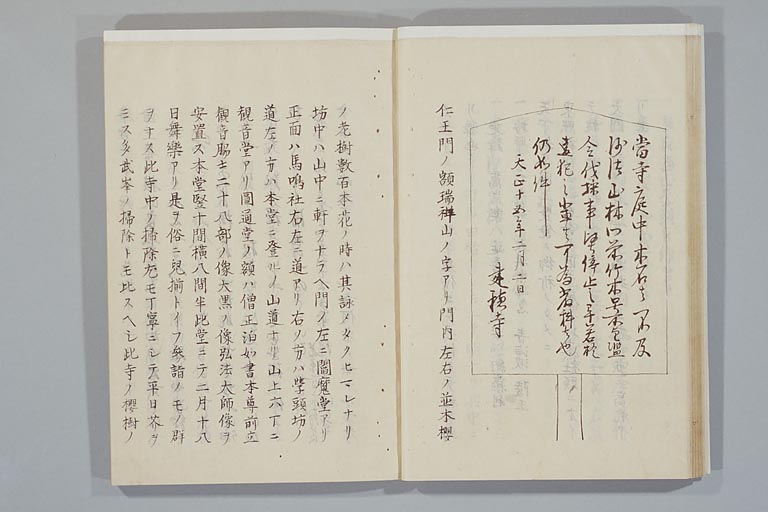 當寺庭中木石之事不及
沙汰山林
令伐採事
仍如件
天正十五年二月二日
建穂寺
仁王門ノ額瑞祥山ノ字アリ門内左右ノ並木櫻
ノ老樹數百本花ノ時ハ其詠メタクヒマレナリ
坊中ハ山中ニ軒ヲナラヘ門ノ左ニ閻魔堂アリ
正面ハ馬鳴社右左ニ道アリ右ノ方ハ學頭坊ノ
道左ノ方ハ本堂ニ登ルノ山道ナリ山上六丁ニ
觀音堂アリ圓通堂ノ額ハ僧正泊如書本尊前立
觀音脇士二十八部ノ像大黒ノ像弘法大師像ヲ
安置ス本堂竪十間横八間半此堂ニテ二月十八
日舞樂アリ是ヲ俗ニ兒揃トイフ參詣ノモノ群
ヲナス比寺中ノ掃除尤モ丁寧ニシテ平日芥ヲ
ミス多武峯ノ掃除トモ比スヘシ此寺ノ櫻樹ノ